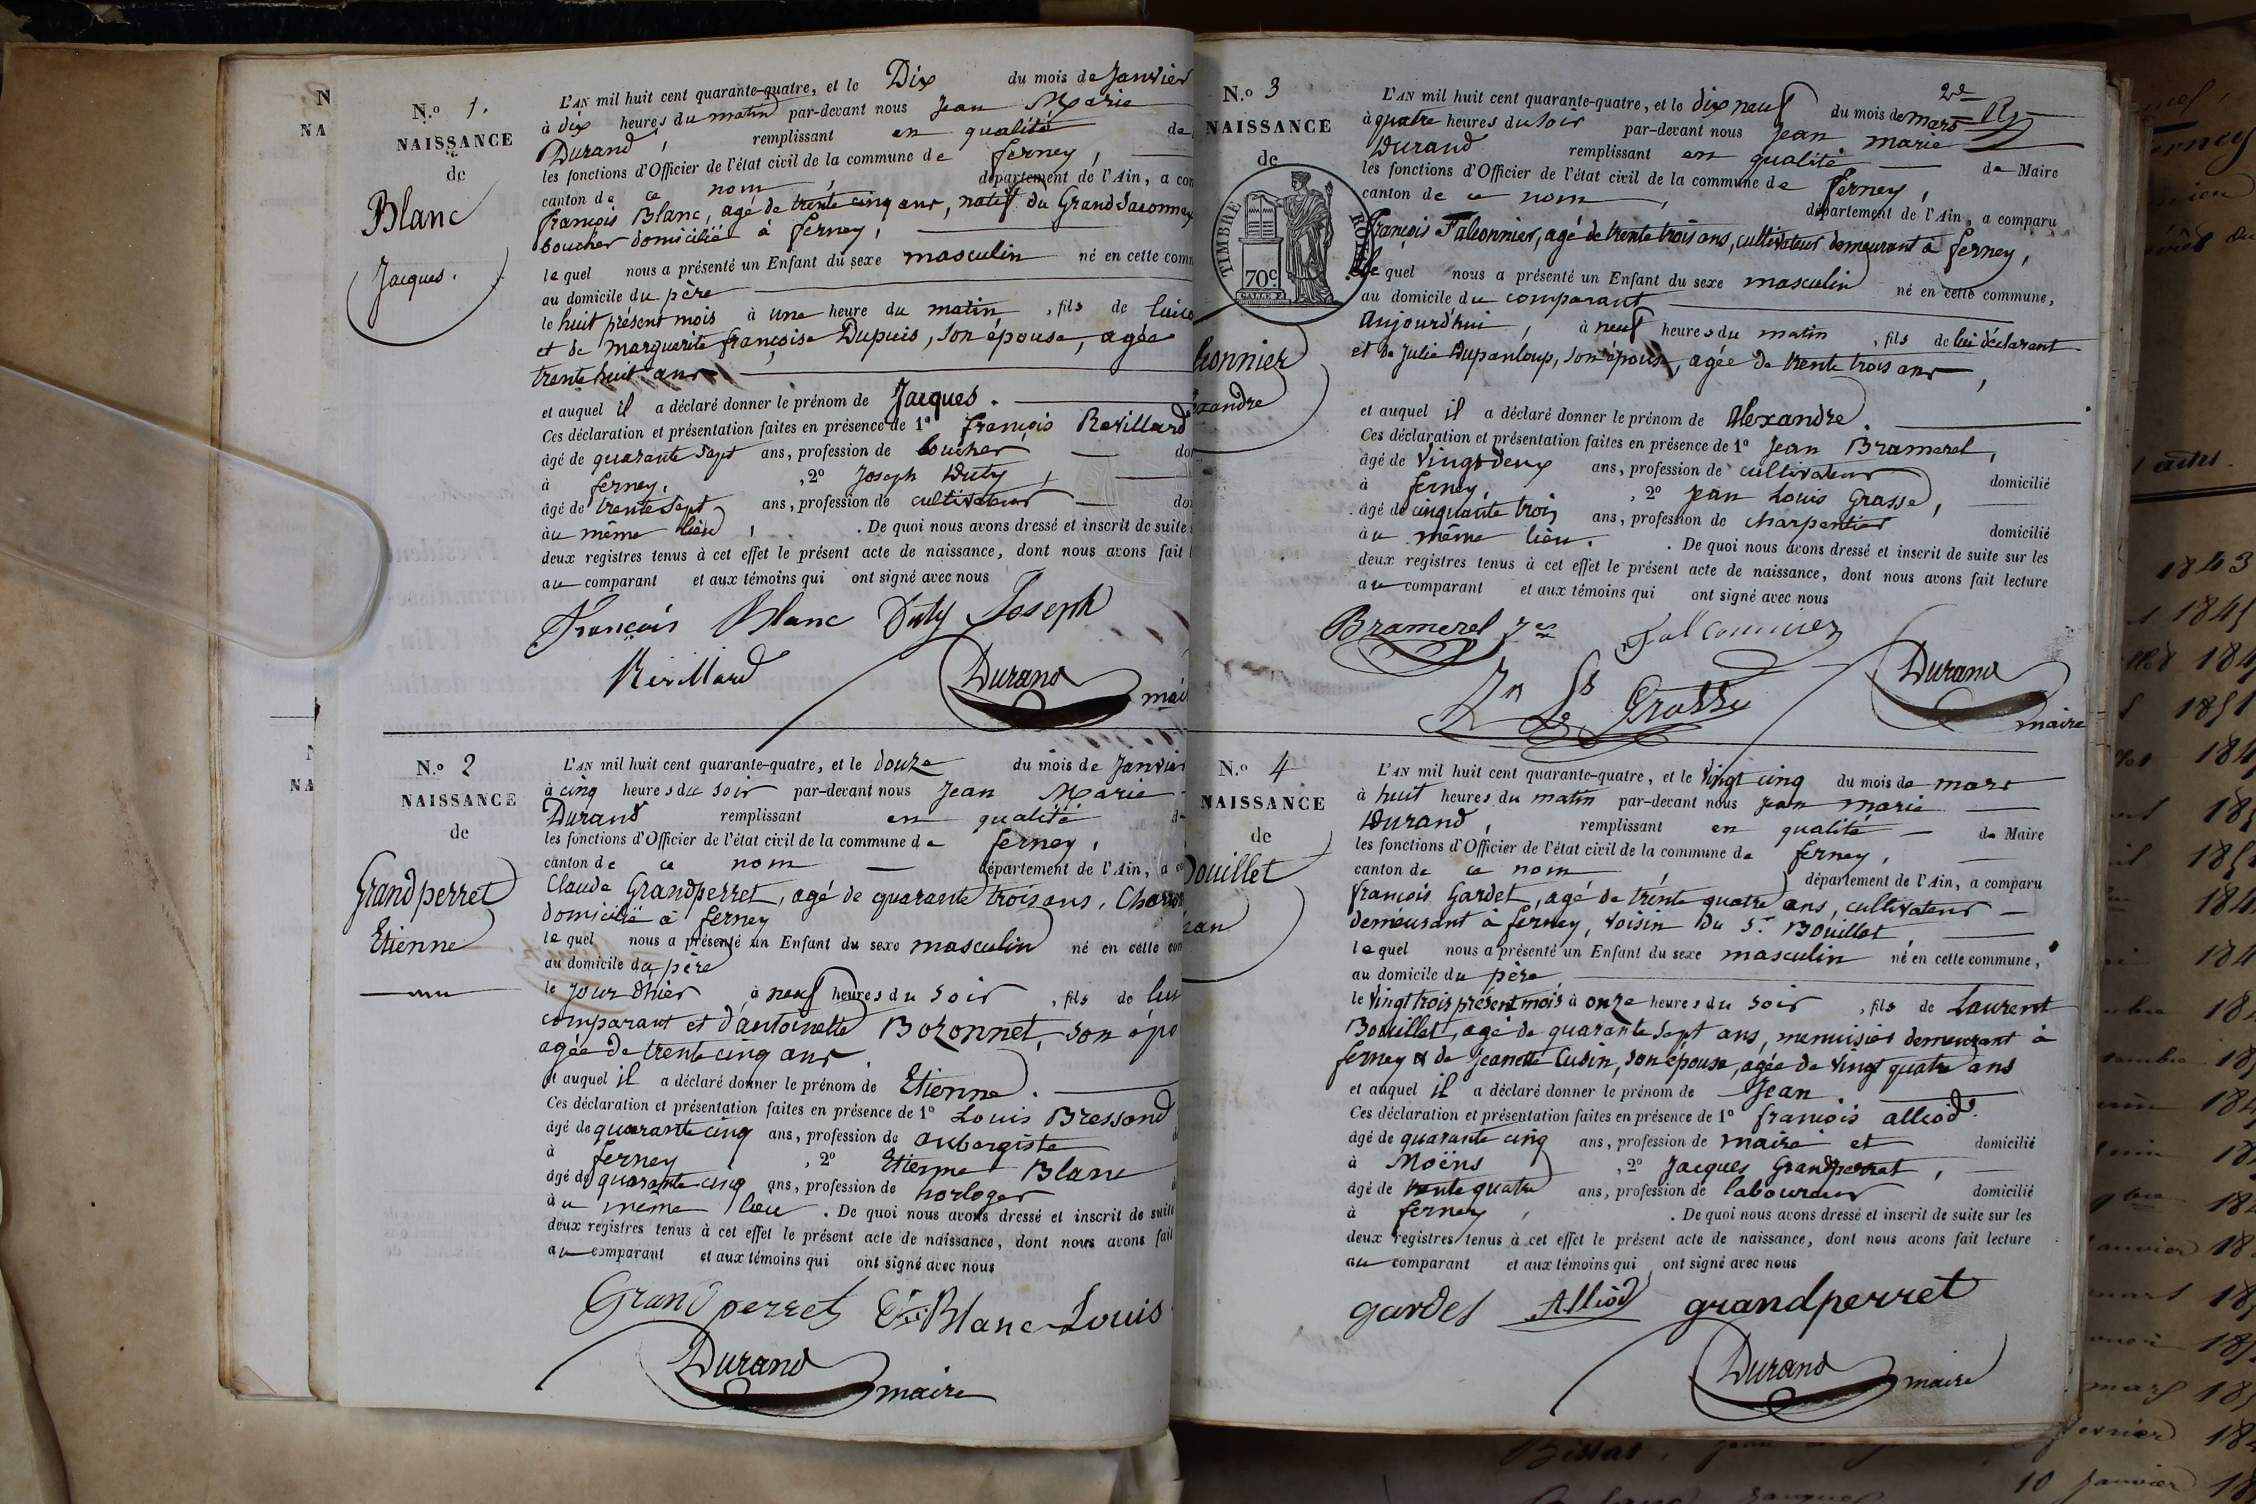 N.o 1.
NAISSANCE
de
Blanc
Jacques.
L'AN mil huit cent quarante-quatre, et le Dix du mois de Janvier
à dix heures du matin par-devant nous Jean Marie
Durand, remplissant en qualité de
les fonctions d'Officier de l'état civil de la commune de ferney,
canton de ce nom, département de l'Ain, a com
françois Blanc, agé de trente cinq ans, natif du Grand Saconnex
boucher domicilié à ferney,
lequel nous a présenté un Enfant du sexe masculin né en cette com
au domicile du père
le huit présent mois à une heure du matin, fils de lui co
et de marguerite françoise Dupuis, son épouse, agée
trente huit ans
et auquel il a déclaré donner le prénom de Jacques.
Ces déclaration et présentation faites en présence de 1° françois Revillard
âgé de quarante sept ans, profession de boucher do
à ferney, , 2° Joseph Duty,
âgé de trente sept ans, profession de cultivateur do
au même lieu, . De quoi nous avons dressé et inscrit de suite
deux registres tenus à cet effet le présent acte de naissance, dont nous avons fait
au comparant et aux témoins qui ont signé avec nous
François Blanc Duty Joseph
Révillard Durand
mai
N.o 2
NAISSANCE
de
Grandperret
Etienne
L'AN mil huit cent quarante-quatre, et le douze du mois de Janvier
à cinq heures du soir par-devant nous Jean Marie
Durand remplissant en qualité de
les fonctions d'Officier de l'état civil de la commune de ferney,
canton de ce nom département de l'Ain, a co
Claude Grandperret, agé de quarante trois ans, Char
domicilié à ferney
lequel nous a présenté un Enfant du sexe masculin né en cette com
au domicile du père
le jour d'hier à neuf heures du soir, fils de lui
comparant et d'antoinette Bozonnet, son épo
agée de trente cinq ans
et auquel il a déclaré donner le prénom de Etienne.
Ces déclaration et présentation faites en présence de 1° Louis Bressond
âgé de quarante cinq ans, profession de aubergiste d
à ferney , 2° Etienne Blanc
âgé de quarante cinq ans, profession de horloger d
au même lieu . De quoi nous avons dressé et inscrit de suite
deux registres tenus à cet effet le présent acte de naissance, dont nous avons fait
au comparant et aux témoins qui ont signé avec nous
Grandperret Et Blanc Louis
Durand
maire
N.o 3
NAISSANCE
de
TIMBRE ROYAL
70c
onnier
xandre
2e
L'AN mil huit cent quarante-quatre, et le dix neuf du mois de mars
à quatre heures du soir par-devant nous Jean marie
Durand remplissant en qualité de Maire
les fonctions d'Officier de l'état civil de la commune de ferney,
canton de ce nom, département de l'Ain, a comparu
françois Falconnier, agé de trente trois ans, cultivateur demeurant à ferney,
lequel nous a présenté un Enfant du sexe masculin né en cette commune,
au domicile du comparant
aujourd'hui, à neuf heures du matin, fils de lui déclarant
et de Julie Dupanloup, son épouse, agée de trente trois ans,
et auquel il a déclaré donner le prénom de Alexandre.
Ces déclaration et présentation faites en présence de 1° Jean Bramerel,
âgé de vingt deux ans, profession de cultivateur domicilié
à ferney, , 2° Jean Louis Grasse,
âgé de cinquante trois ans, profession de charpentier domicilié
au même lieu. . De quoi nous avons dressé et inscrit de suite sur les
deux registres tenus à cet effet le présent acte de naissance, dont nous avons fait lecture
au comparant et aux témoins qui ont signé avec nous
Bramerel Falconnier
Jn Ls Grasse Durand
maire
N.o 4
NAISSANCE
de
Bouillet
Jean
L'AN mil huit cent quarante-quatre, et le vingt cinq du mois de mars
à huit heures du matin par-devant nous Jean marie
Durand, remplissant en qualité de Maire
les fonctions d'Officier de l'état civil de la commune de ferney,
canton de ce nom, département de l'Ain, a comparu
françois Gardet, agé de trente quatre ans, cultivateur
demeurant à ferney, voisin du Sr Bouillet,
lequel nous a présenté un Enfant du sexe masculin né en cette commune,
au domicile du père
le vingt trois présent mois à onze heures du soir, fils de Laurent
Bouillet, agé de quarante sept ans, menuisier demeurant à
ferney & de Jeanette Cusin, son épouse, agée de vingt quatre ans
et auquel il a déclaré donner le prénom de Jean.
Ces déclaration et présentation faites en présence de 1° françois alliod.
âgé de quarante cinq ans, profession de maire et domicilié
à Moëns , 2° Jacques Grandperret,
âgé de trente quatre ans, profession de laboureur domicilié
à ferney, . De quoi nous avons dressé et inscrit de suite sur les
deux registres tenus à cet effet le présent acte de naissance, dont nous avons fait lecture
au comparant et aux témoins qui ont signé avec nous
gardet Alliod grandperret
Durand
maire
1843
10 Janvier